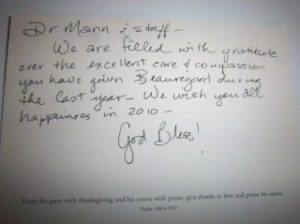 Dr Mann & staff -
We are filled with gratitude
over the excellent care & compassion
you have given Beauregard during
the last year - We wish you all
happiness in 2010 -
God Bless!
Enter his gates with thanksgiving and his courts with praise; give thanks to him and praise his name.
Psalm 100:4 NIV